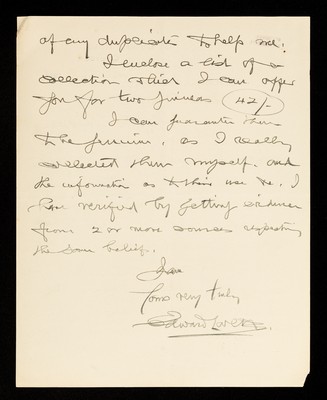 of any duplicates to help me.
I enclose a list of a
collection which I can offer
you for two guineas (42/-)
I can guarantee them
to be genuine, as I really
collected them myself and
the information as to their use &c. I
have verified by getting evidence
from 2 or more sources respecting
the same belief.
I am
Yours very truly
Edward Lovett.